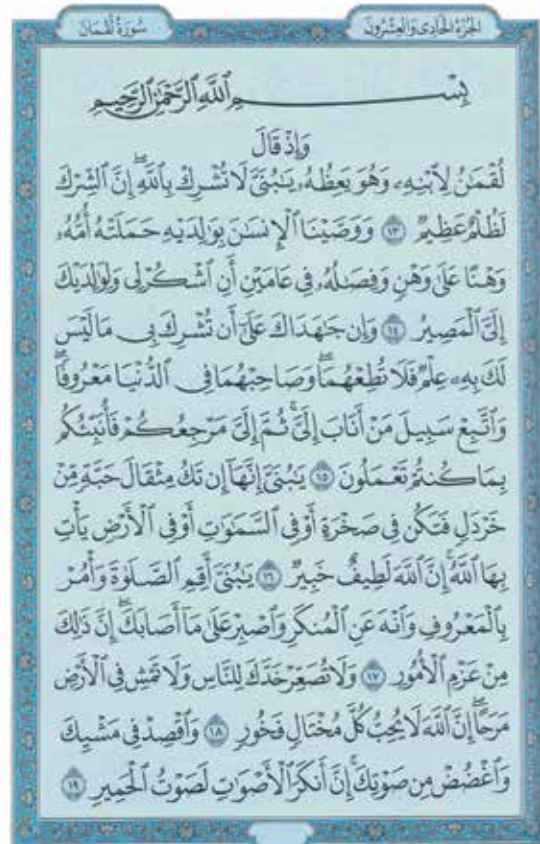 الجزء الحادي والعشرون
سورة لقمان
بِسْمِ ٱللَّهِ ٱلرَّحْمَٰنِ ٱلرَّحِيمِ
وَإِذْ قَالَ
لُقْمَٰنُ لِٱبْنِهِۦ وَهُوَ يَعِظُهُۥ يَٰبُنَىَّ لَا تُشْرِكْ بِٱللَّهِۖ إِنَّ ٱلشِّرْكَ
لَظُلْمٌ عَظِيمٌ ١٣ وَوَصَّيْنَا ٱلْإِنسَٰنَ بِوَٰلِدَيْهِ حَمَلَتْهُ أُمُّهُۥ
وَهْنًا عَلَىٰ وَهْنٍ وَفِصَٰلُهُۥ فِى عَامَيْنِ أَنِ ٱشْكُرْ لِى وَلِوَٰلِدَيْكَ
إِلَىَّ ٱلْمَصِيرُ ١٤ وَإِن جَٰهَدَاكَ عَلَىٰٓ أَن تُشْرِكَ بِى مَا لَيْسَ
لَكَ بِهِۦ عِلْمٌ فَلَا تُطِعْهُمَاۖ وَصَاحِبْهُمَا فِى ٱلدُّنْيَا مَعْرُوفًاۖ
وَٱتَّبِعْ سَبِيلَ مَنْ أَنَابَ إِلَىَّۚ ثُمَّ إِلَىَّ مَرْجِعُكُمْ فَأُنَبِّئُكُم
بِمَا كُنتُمْ تَعْمَلُونَ ١٥ يَٰبُنَىَّ إِنَّهَآ إِن تَكُ مِثْقَالَ حَبَّةٍ مِّنْ
خَرْدَلٍ فَتَكُن فِى صَخْرَةٍ أَوْ فِى ٱلسَّمَٰوَٰتِ أَوْ فِى ٱلْأَرْضِ يَأْتِ
بِهَا ٱللَّهُۚ إِنَّ ٱللَّهَ لَطِيفٌ خَبِيرٌ ١٦ يَٰبُنَىَّ أَقِمِ ٱلصَّلَوٰةَ وَأْمُرْ
بِٱلْمَعْرُوفِ وَٱنْهَ عَنِ ٱلْمُنكَرِ وَٱصْبِرْ عَلَىٰ مَآ أَصَابَكَۖ إِنَّ ذَٰلِكَ
مِنْ عَزْمِ ٱلْأُمُورِ ١٧ وَلَا تُصَعِّرْ خَدَّكَ لِلنَّاسِ وَلَا تَمْشِ فِى ٱلْأَرْضِ
مَرَحًاۖ إِنَّ ٱللَّهَ لَا يُحِبُّ كُلَّ مُخْتَالٍ فَخُورٍ ١٨ وَٱقْصِدْ فِى مَشْيِكَ
وَٱغْضُضْ مِن صَوْتِكَۚ إِنَّ أَنكَرَ ٱلْأَصْوَٰتِ لَصَوْتُ ٱلْحَمِيرِ ١٩